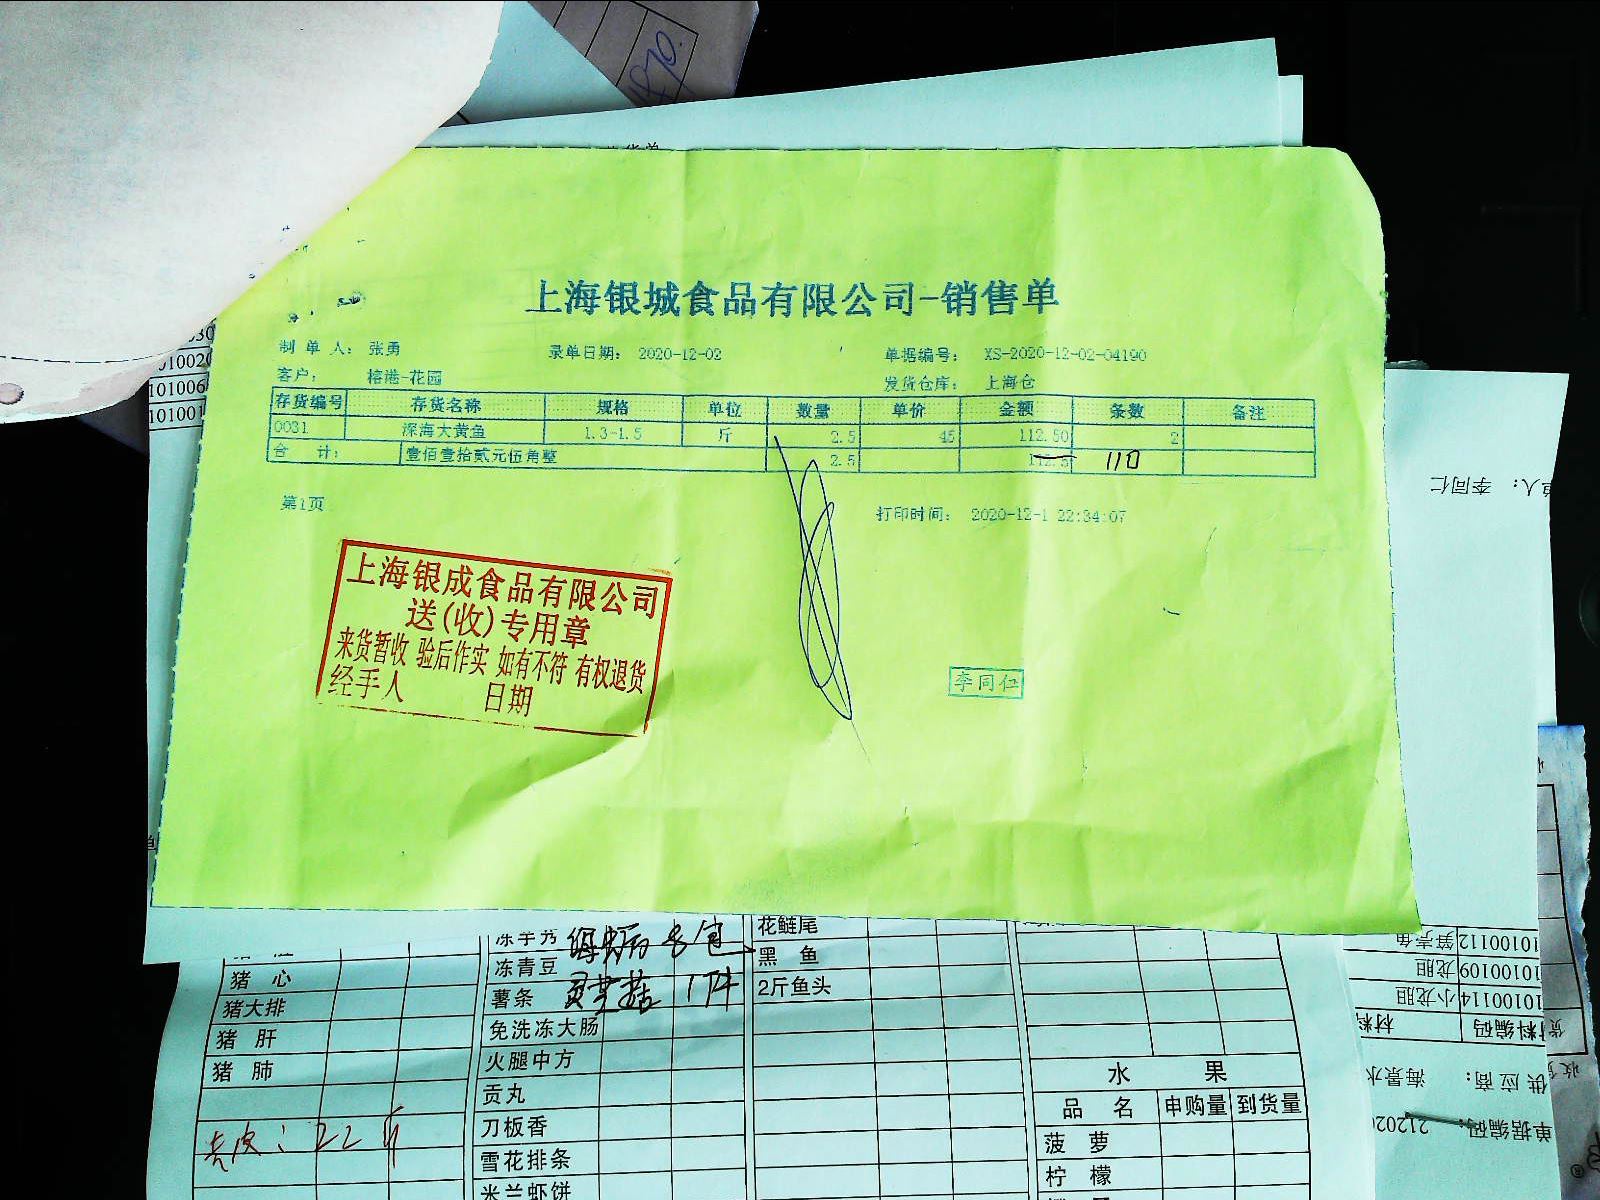 470.
上海银城食品有限公司-销售单
制 单 人： 张勇 录单日期： 2020-12-02 单据编号： XS-2020-12-02-04190
客户： 榕港-花园 发货仓库： 上海仓
存货编号 存货名称 规格 单位 数量 单价 金额 条数 备注
0031 深海大黄鱼 1.3-1.5 斤 2.5 45 112.50 2
合 计： 壹佰壹拾贰元伍角整 2.5 112.5 110
第1页 打印时间： 2020-12-1 22:34:07
上海银成食品有限公司
送(收)专用章
来货暂收 验后作实 如有不符 有权退货
经手人 日期
李同仁
01002
101006
101001
人： 李同仁
冻芋艿 8包 花鲢尾
猪 心 冻青豆 黑 鱼
猪大排 薯条 1件 2斤鱼头
猪 肝 免洗冻大肠
猪 肺 火腿中方 水 果
贡丸 品 名 申购量 到货量
去皮：22斤 刀板香 菠 萝
雪花排条 柠 檬
米兰虾饼
10100112 笋壳鱼
10100109 龙胆
10100114 小龙胆
材料编码 材料
供应商： 海景水
单据编码： 212020